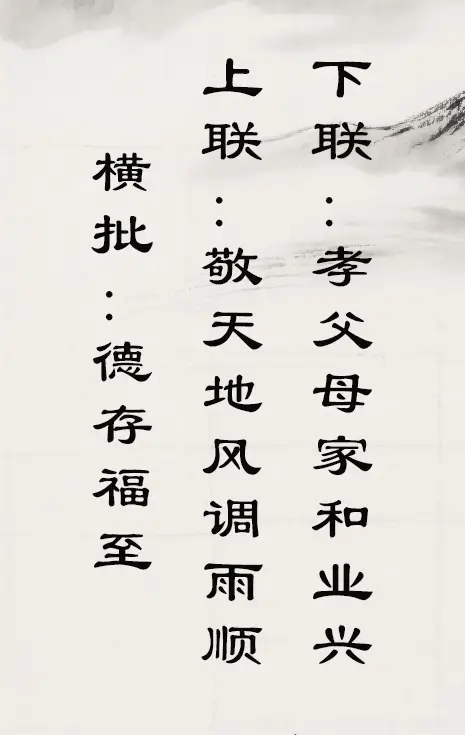 下联：孝父母家和业兴
上联：敬天地风调雨顺
横批：德存福至